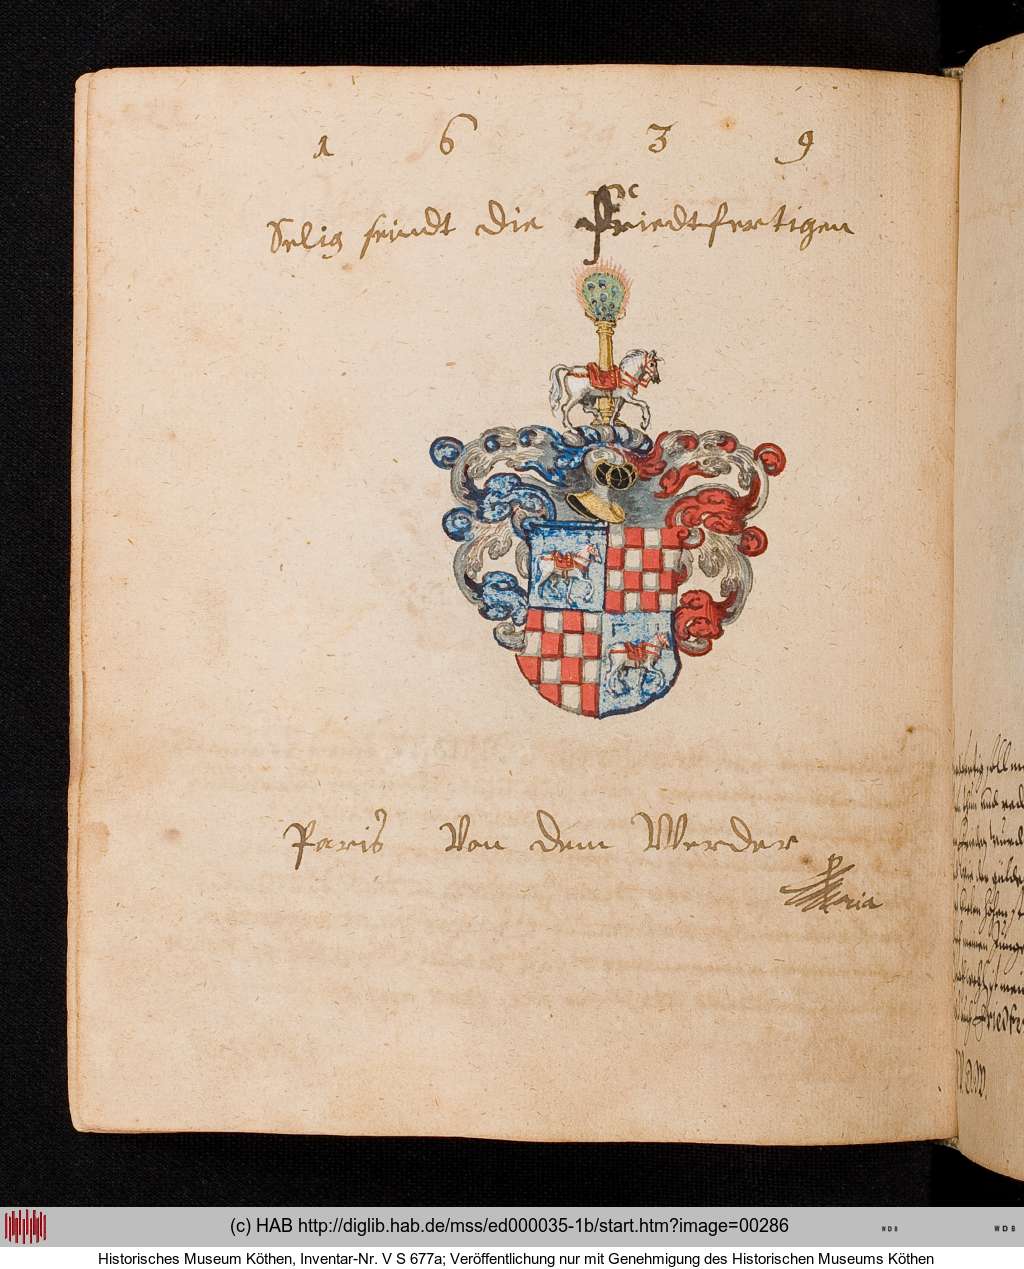 1 6 3 9
Selig seindt die Friedtfertigen
Paris Von dem Werder
(c) HAB http://diglib.hab.de/mss/ed000035-1b/start.htm?image=00286
WDB
WDB
Historisches Museum Köthen, Inventar-Nr. V S 677a; Veröffentlichung nur mit Genehmigung des Historischen Museums Köthen